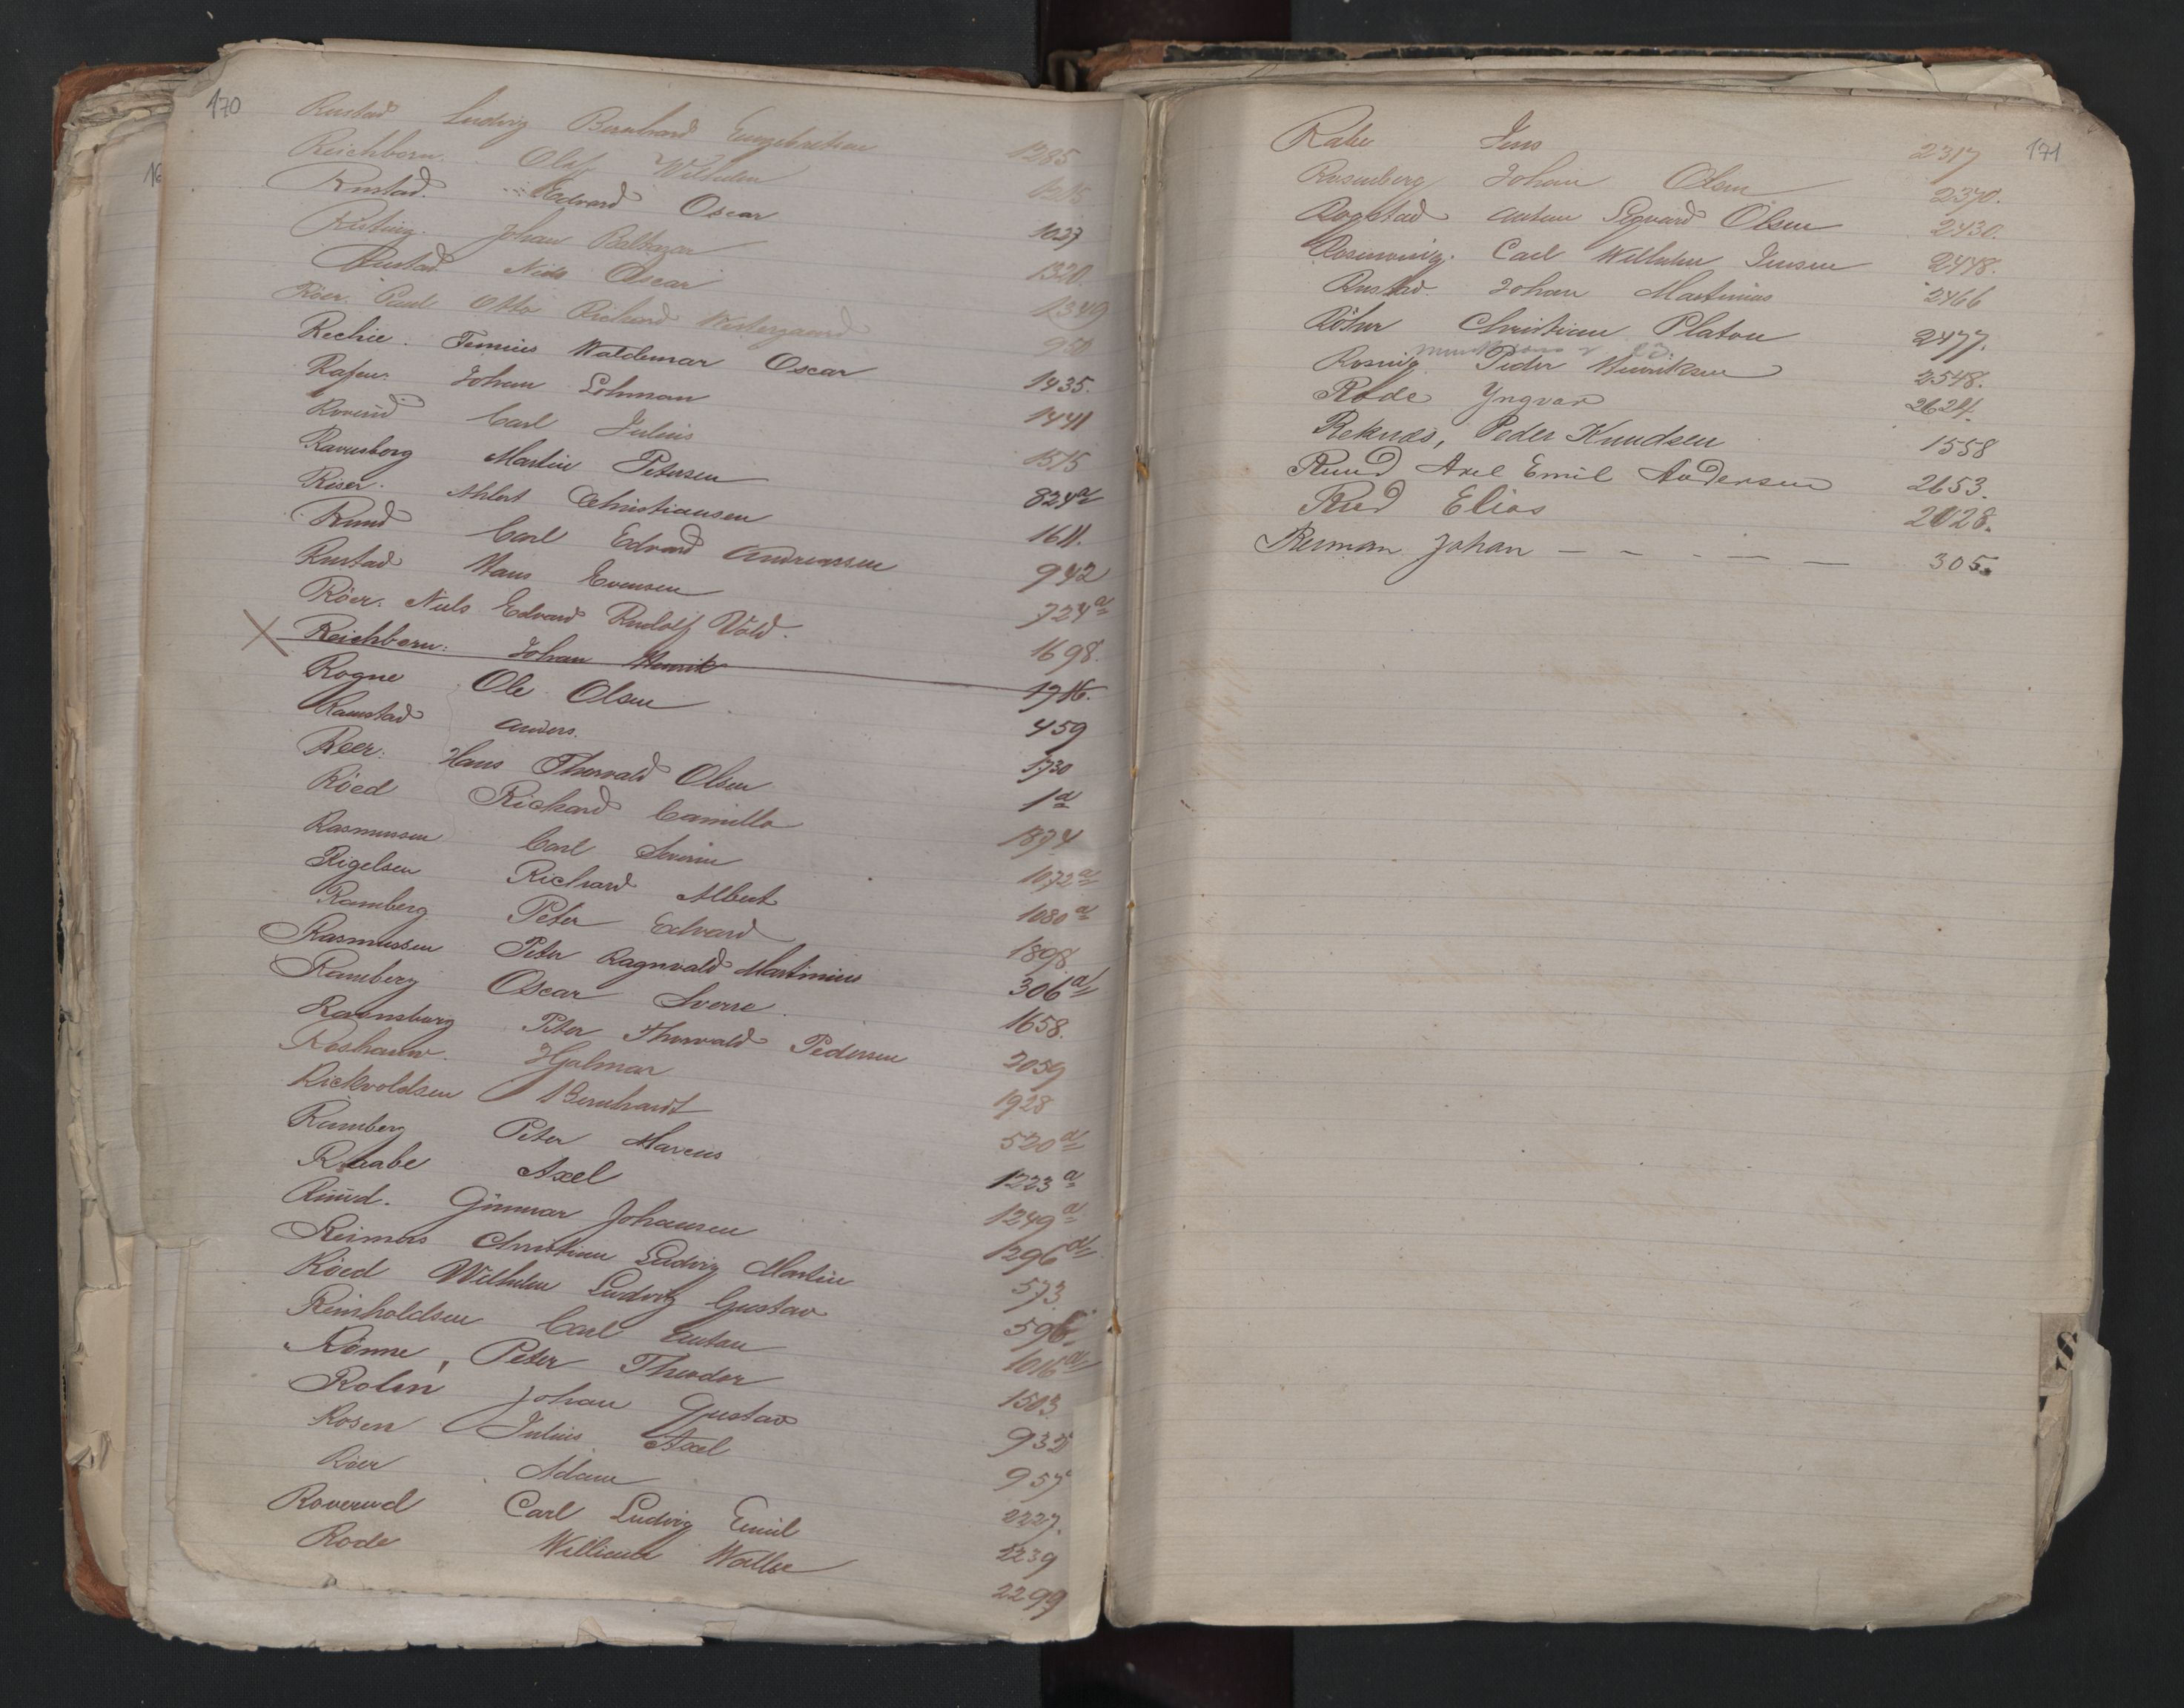 170
Rustad Ludvig Bernhard Engebretsen 1285
Reichborn. Oluf Wilhelm 1215
Rustad. Edvard Oscar 1027
Risting. Johan Baltazar 1320.
Rustad. Nils Oscar 1349
Röer. Paul Otto Richard Westergaard 950
Rechie. Tennius Waldemar Oscar 1435.
Rafen. Johan Lohman 1441
Rovud Carl Julius 1515
Ravnsborg Martin Petersen 824a
Riser. Ahlert Christiansen 1611.
Ruud Carl Edvard Andreassen 942
Rustad Hans Evensen 724a
Röer. Niels Edvard Rudolf Vold. 1698.
Reichborn: Johan Henrik 1716.
Rogne Ole Olsen 459
Ramstad Anders. 1730
Reer: Hans Thorvald Olsen 1a
Röed Richard Camillo 1874
Rasmussen Carl Severin 1072a
Rigelsen Richard Albert 1080a
Ramberg Peter Edvard 1898
Rasmussen Peter Ragnvald Martinius 306a
Ramberg Oscar Sverre. 1658.
Ravensburg Peter Thorvald Pedersen 2059
Roshauw. Hjalmar 1928
Rickvoldsen Bernhardt 520a
Ramberg Peter Marcus 1223a
Raabe Axel 1249a
Ruud. Gunnar Johansen 1296a
Reimers Christian Ludvig Martin 573
Röed Wilhelm Ludvig Gustav 596.
Reinholdsen Carl Anton 1016a
Rönne, Peter Theodor 1503
Rolin Johan Gustav 932
Rosen Julius Axel 957
Röer Adam 2227.
Roverud Carl Ludvig Emil 2239
Rode William Wolke 2299
171
Rabe Jens 2317
Rosenberg Johan Olsen 2370.
Rogstad Anton Sigvard Olsen 2430.
Rosenvinge. Carl Wilhelm Jensen 2448.
Rustad. Johan Martinius 2466
Röhr Christian Platou 2477.
Rosnig. Peder Henriksen 2548.
Rode Yngvar 2624.
Reknes, Peder Knudsen 1558
Ruud Axel Emil Andersen 2653.
Rud Elias 2028.
Reiman Johan — - - — — 305.